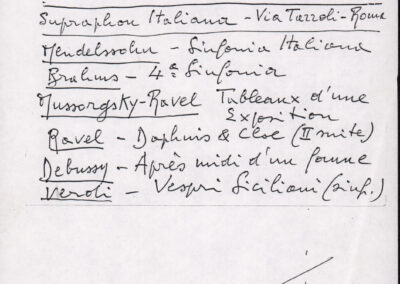 Supraphon Italiana - Via Tazzoli - Roma
Mendelssohn - Sinfonia Italiana
Brahms - 4ª Sinfonia
Mussorgsky-Ravel Tableaux d'une
Exposition
Ravel - Daphnis & Cloe (II suite)
Debussy - Après midi d'un faune
Verdi - Vespri Siciliani (sinf.)